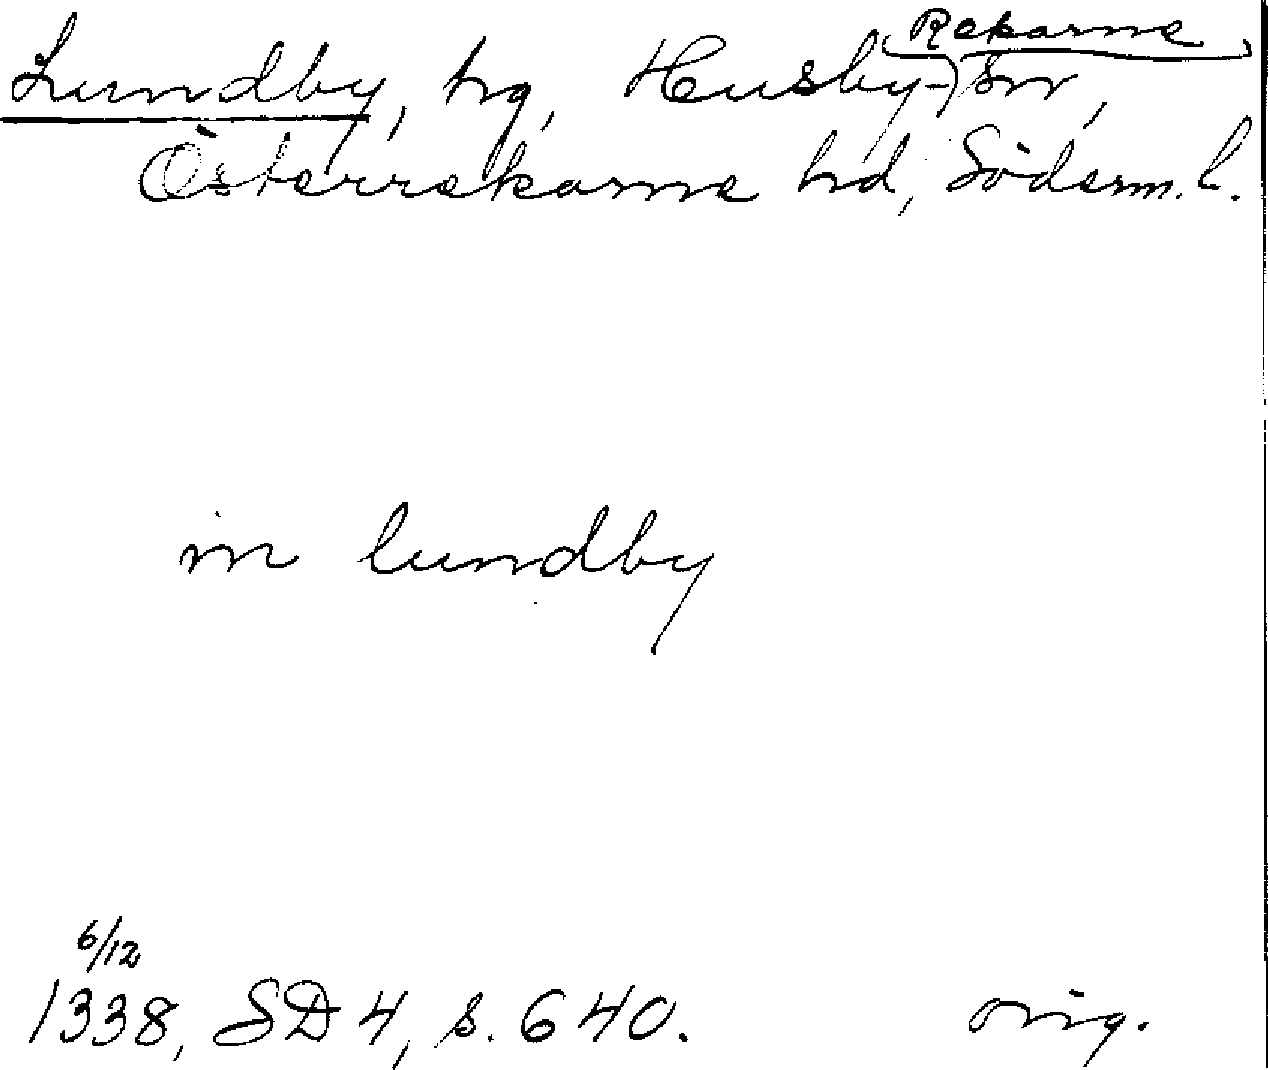 Lundby, hg, Husby-Rekarne sn,
Österrekarne hd, Söderm. l.
in lundby
6/12
1338, SD 4, s. 640. orig.